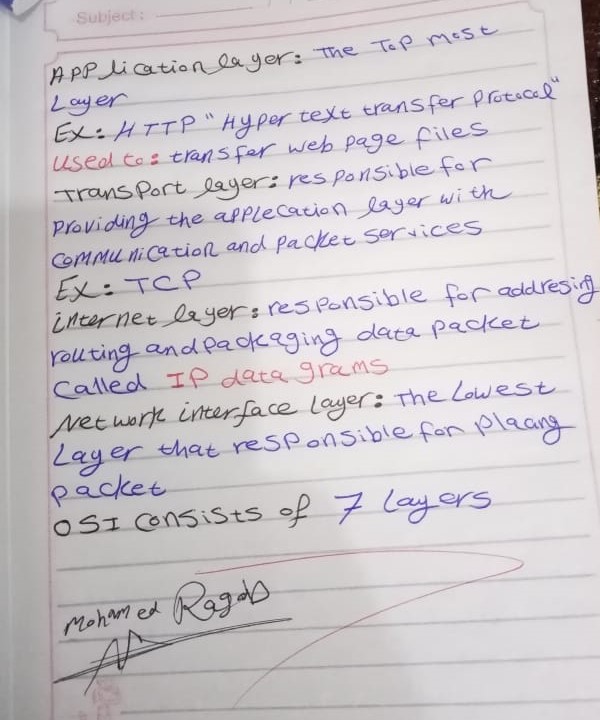 Subject:
Application layer: The Top most
Layer
Ex: HTTP "Hyper text transfer Protocol"
Used to: transfer web page files
Transport layer: responsible for
Providing the applecation layer with
communication and packet services
Ex: TCP
internet layer: responsible for addresing
routing and packaging data packet
Called IP data grams
Network interface Layer: The Lowest
Layer that responsible for Plaang
packet
OSI consists of 7 layers
Mohamed Ragab